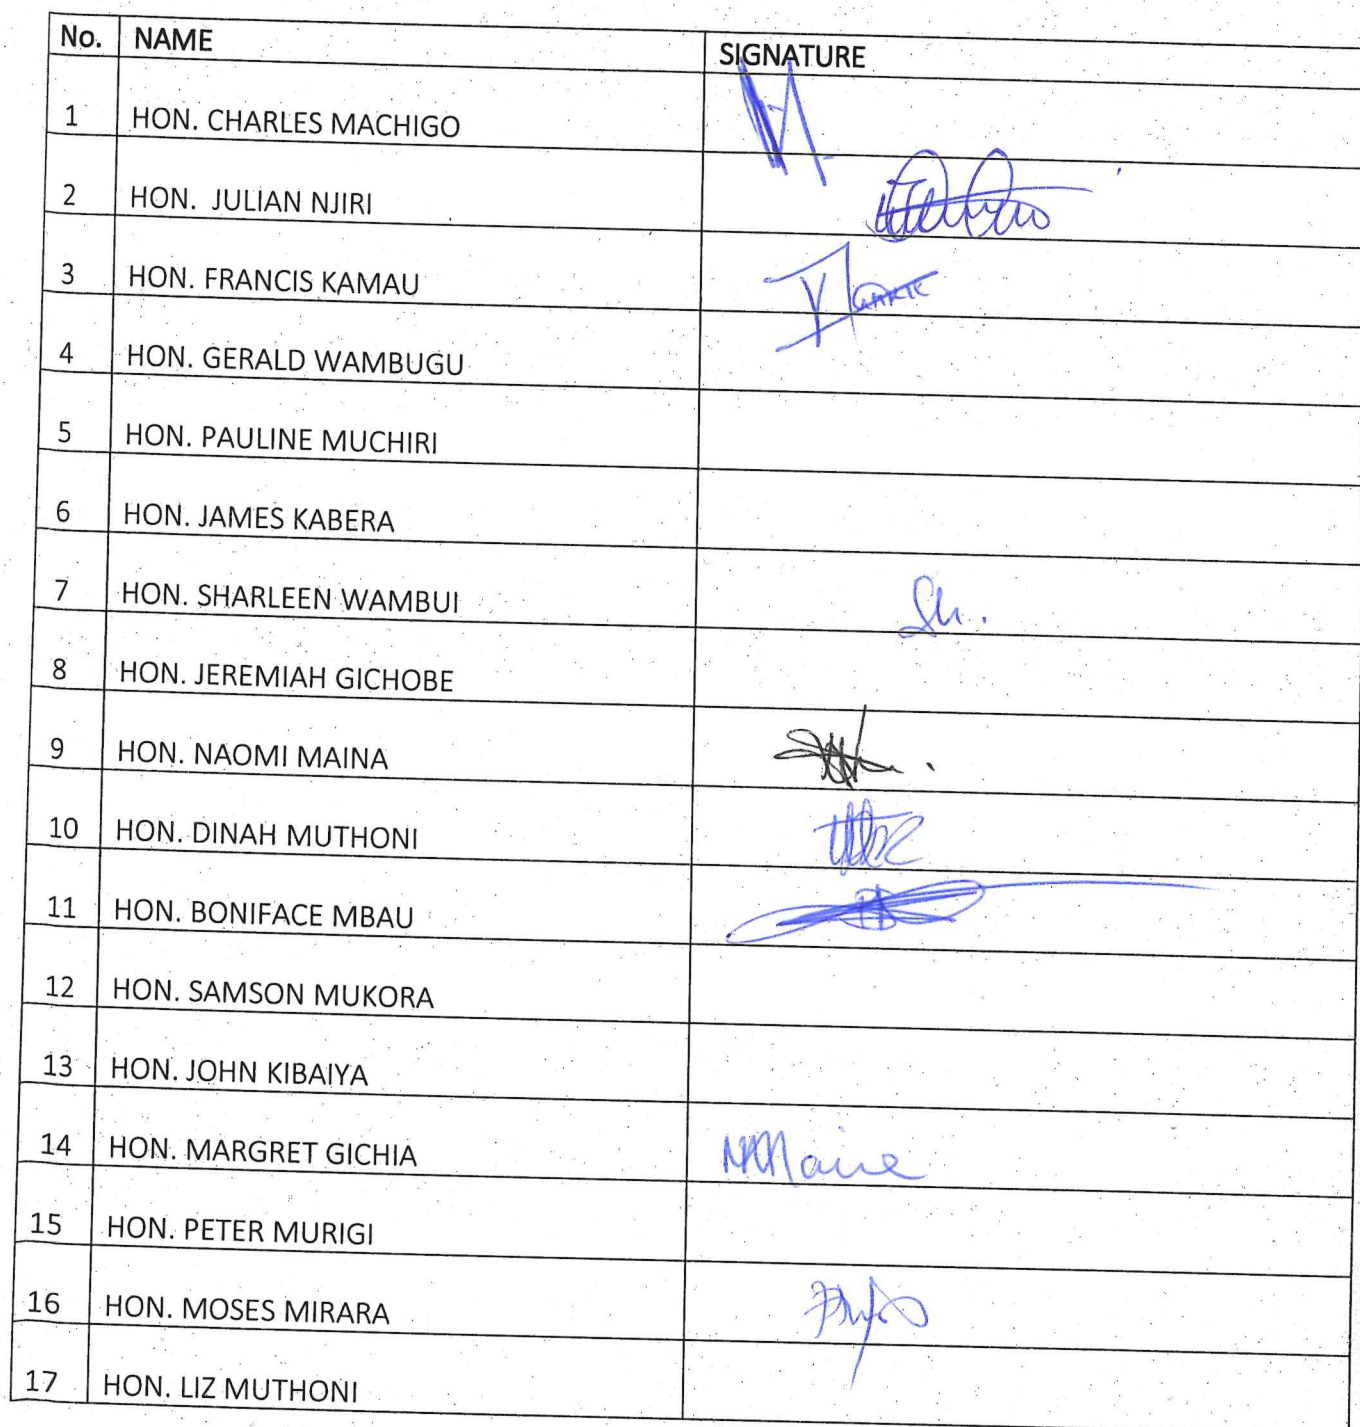 No. NAME SIGNATURE
1 HON. CHARLES MACHIGO
2 HON. JULIAN NJIRI
3 HON. FRANCIS KAMAU
4 HON. GERALD WAMBUGU
5 HON. PAULINE MUCHIRI
6 HON. JAMES KABERA
7 HON. SHARLEEN WAMBUI Sh.
8 HON. JEREMIAH GICHOBE
9 HON. NAOMI MAINA
10 HON. DINAH MUTHONI
11 HON. BONIFACE MBAU
12 HON. SAMSON MUKORA
13 HON. JOHN KIBAIYA
14 HON. MARGRET GICHIA
15 HON. PETER MURIGI
16 HON. MOSES MIRARA
17 HON. LIZ MUTHONI